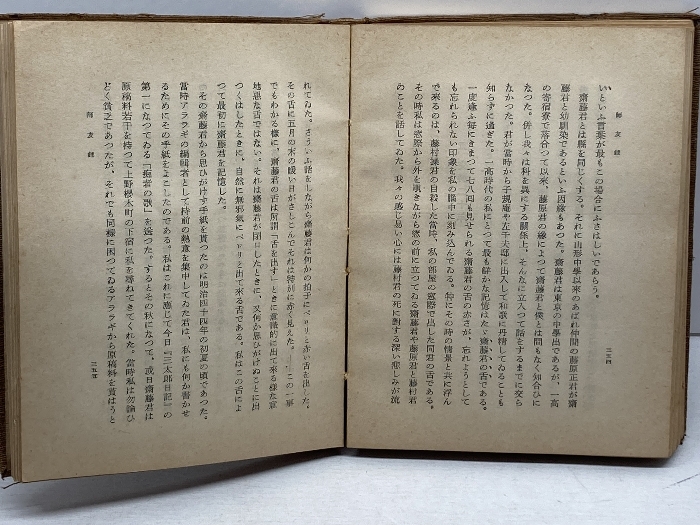 師友録
二三四
いといふ言葉が最もこの場合にふさはしいであらう。
齋藤君とは縣を同じくする。それに山形中學以來のあばれ仲間の藤原正君が齋
藤君と幼馴染であるといふ因縁もあつた。齋藤君は東京の中學出であるが、一高
の寄宿寮で落合つて以來、藤原君の縁によつて齋藤君と僕とは間もなく知合ひに
なつた。併し我々は科を異にする關係上、そんなに立入つて話をするまでに交ら
なかつた。君が當時から子規庵や左千夫邸に出入して和歌に丹精してゐることも
知らずに過ぎた。一高時代の私にとつて最も鮮かな記憶はたゞ齋藤君の舌である。
一度逢ふ毎にきまつて七八囘も見せられる齋藤君の舌の赤さが、忘れようとして
も忘れられない印象を私の腦中に刻み込んでゐる。特にその時の情景と共に浮ん
で來るのは、藤村操君の自殺した當時、私の部屋の窓際で出した同君の舌である。
その時私は窓際から外を覗きながら窓の前に立つてゐる齋藤君や藤原君と藤村君
のことを話してゐた。我々の感じ易い心には藤村君の死に對する深い悲しみが流
れてゐた。さういふ話をしながら齋藤君は何かの拍子にペロリと赤い舌を出した。
その舌に五月の末の暖い日がさしこんでそれは特別に赤く見えた。――この一事
でもわかる樣に、齋藤君の舌は所謂「舌を出す」ときに意識的に出て來る樣な意
地惡な舌ではない。それは齋藤君が閉口したときに、又何か思ひがけぬことに出
つくはしたときに、自然に無邪氣にペロリと出て來る舌である。私はこの舌によ
つて最初に齋藤君を記憶した。
その齋藤君から思ひがけず手紙を貰つたのは明治四十四年の初夏の頃であつた。
當時アララギの編輯者として持前の熱意を集中してゐた君は、私にも何か書かせ
るためにその手紙をよこしたのである。私はこれに感じて今日『三太郎日記』の
第一になつてゐる「痴者の歌」を送つた。するとその私になつて、或日齋藤君は
原稿料若干を持つて上野櫻木町の下宿に私を尋ねてきてくれた。當時私は勿論ひ
どく貧乏であつたが、それでも同樣に困つてゐるアララギから原稿料を貰はうと
師友録
二三五